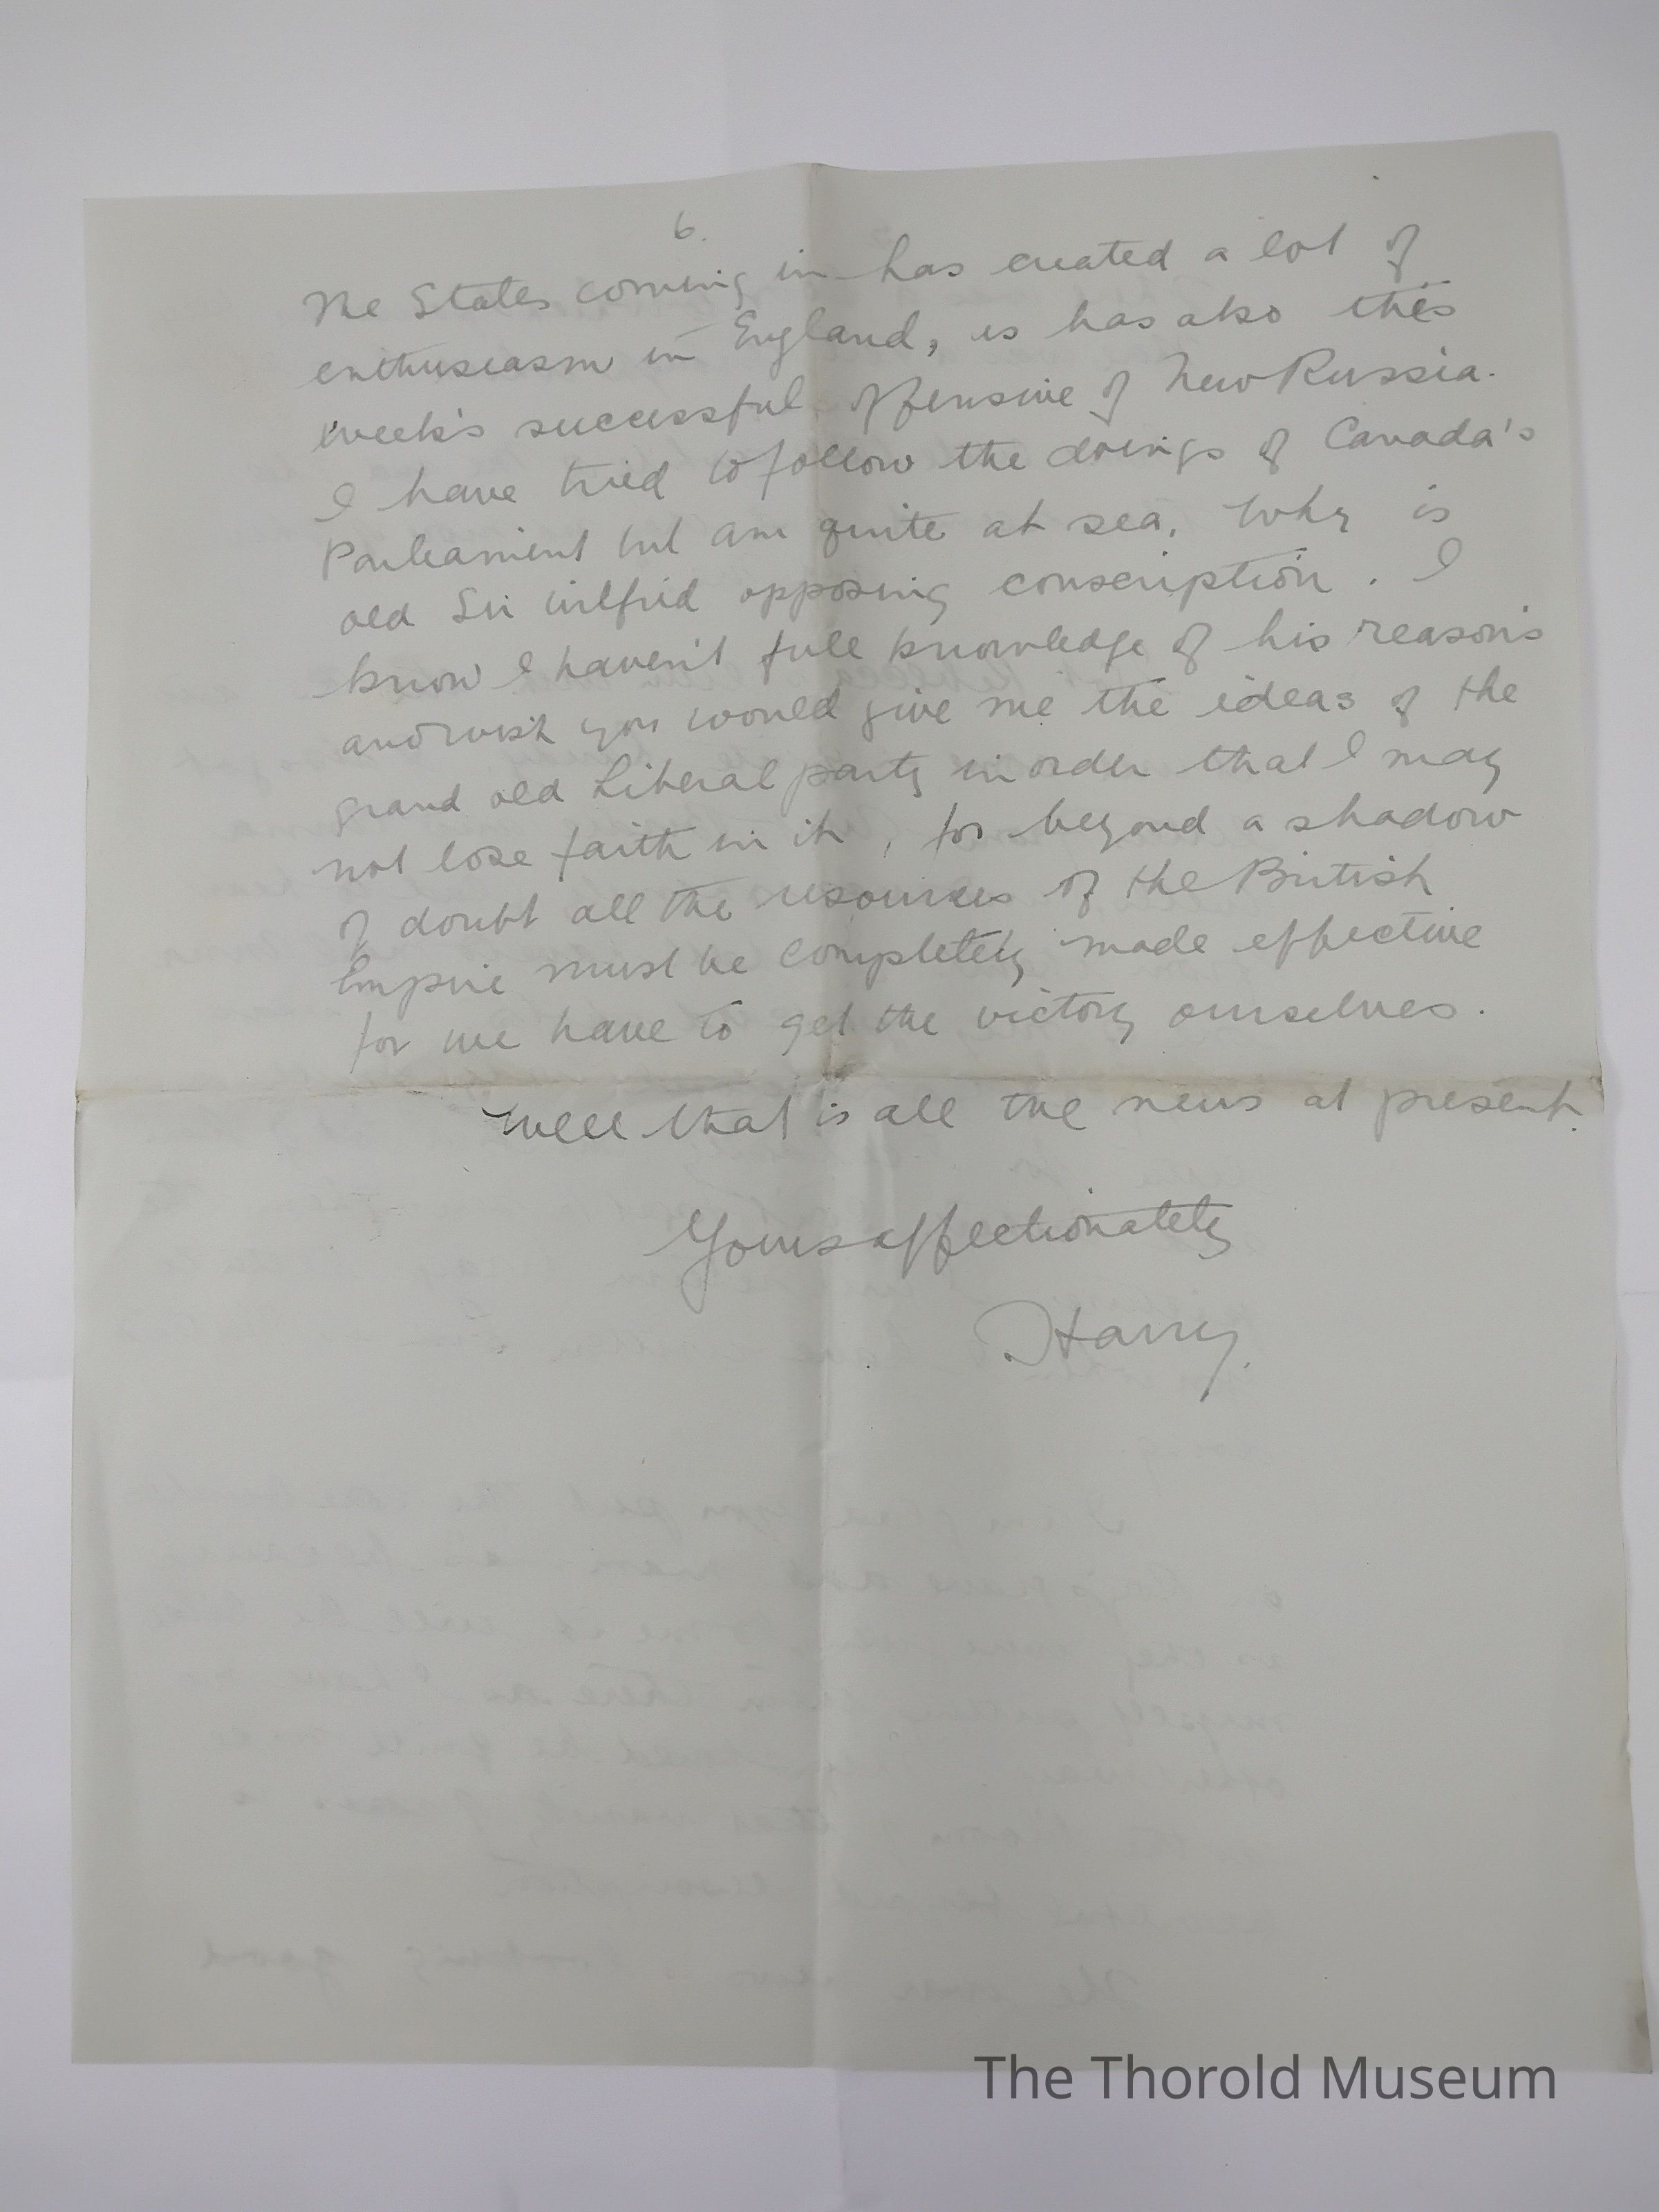 6.
The States coming in has created a lot of
enthusiasm in England, is has also this
week's successful offensive of New Russia.
I have tried to follow the doings of Canada's
Parliament but am quite at sea. Why is
old Sir Wilfrid opposing conscription. I
know I haven't full knowledge of his reasons
and wish you would give me the ideas of the
grand old Liberal party in order that I may
not lose faith in it, for beyond a shadow
of doubt all the resources of the British
Empire must be completely made effective
for we have to get the victory ourselves.
Well that is all the news at present.
Yours affectionately
Harry.
The Thorold Museum